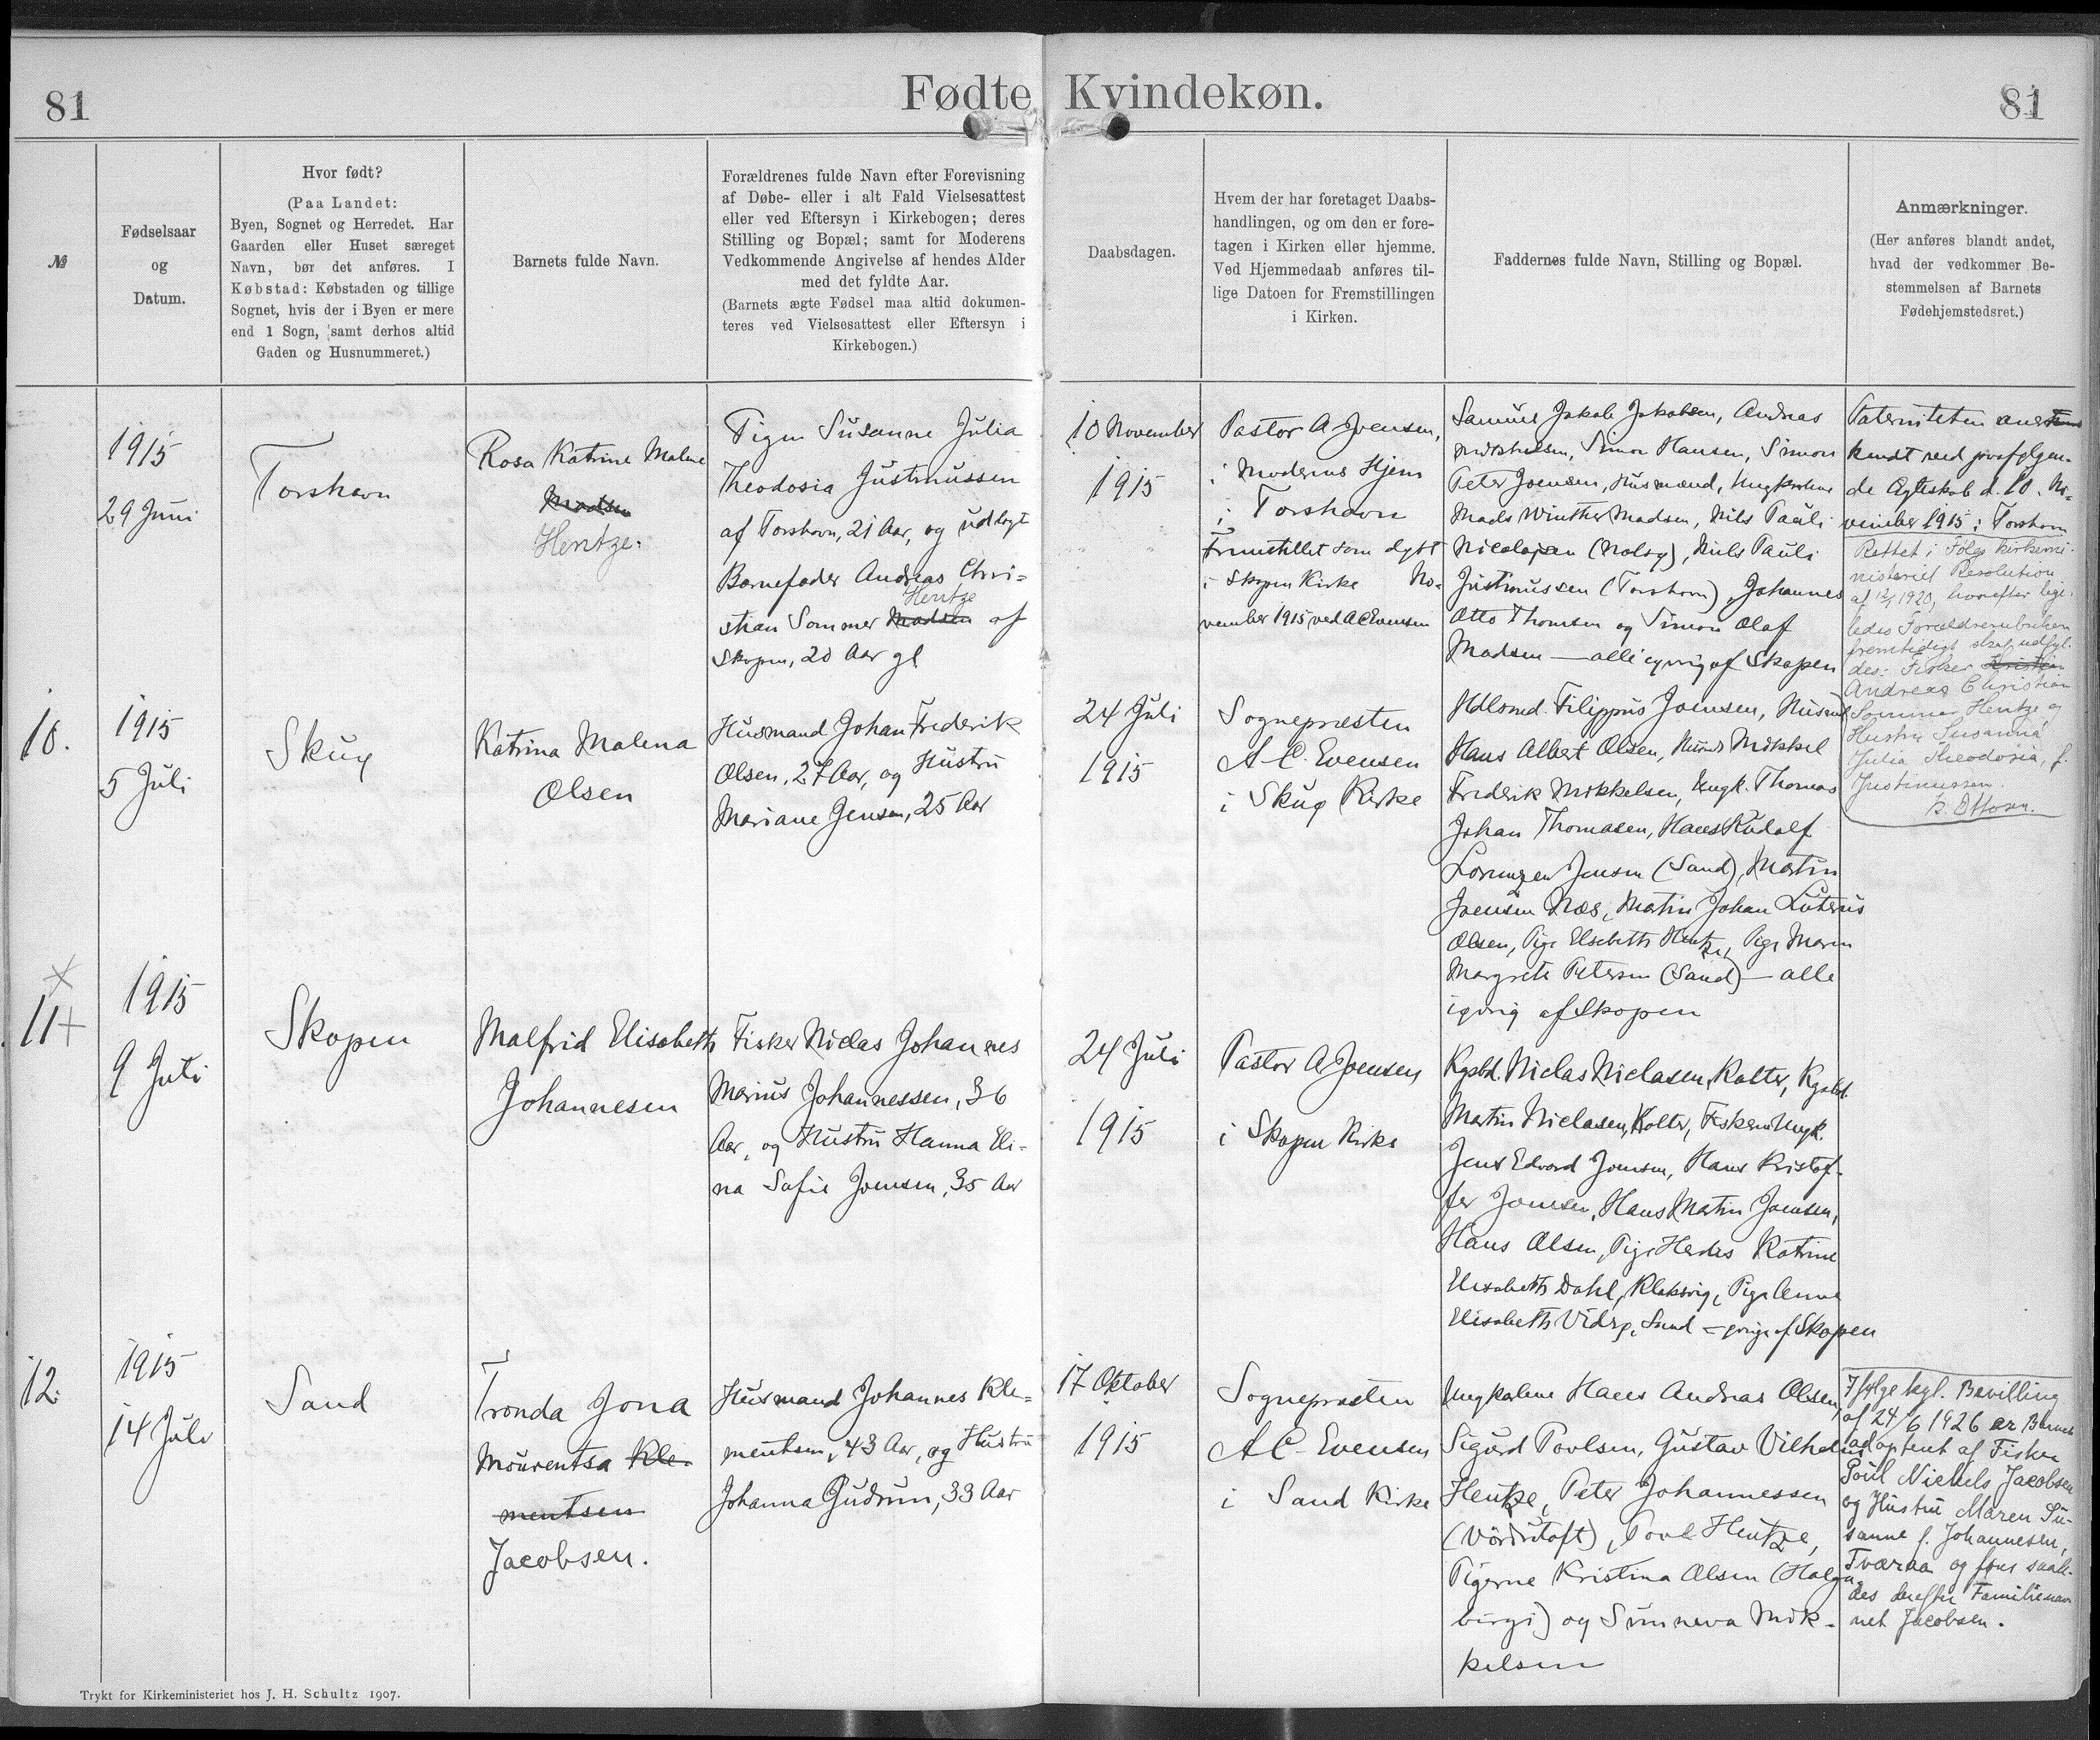 81
Fødte Kvindekøn.
81
№
Fødselsaar
og
Datum.
Hvor født?
(Paa Landet:
Byen, Sognet og Herredet. Har
Gaarden eller Huset særeget
Navn, bør det anføres. I
Købstad: Købstaden og tillige
Sognet, hvis der i Byen er mere
end 1 Sogn, samt derhos altid
Gaden og Husnummeret.)
Barnets fulde Navn.
Forældrenes fulde Navn efter Forevisning
af Døbe- eller i alt Fald Vielsesattest
eller ved Eftersyn i Kirkebogen; deres
Stilling og Bopæl; samt for Moderens
Vedkommende Angivelse af hendes Alder
med det fyldte Aar.
(Barnets ægte Fødsel maa altid dokumen-
teres ved Vielsesattest eller Eftersyn i
Kirkebogen.)
Daabsdagen.
Hvem der har foretaget Daabs-
handlingen, og om den er fore-
tagen i Kirken eller hjemme.
Ved Hjemmedaab anføres til-
lige Datoen for Fremstillingen
i Kirken.
Faddernes fulde Navn, Stilling og Bopæl.
Anmærkninger.
(Her anføres blandt andet,
hvad der vedkommer Be-
stemmelsen af Barnets
Fødehjemstedsret.)
1915
29 Juni
Torshavn
Rosa Katrine Malene
Madsen
Hentze.
Pigen Susanne Julia
Theodosia Justinussen
af Torshavn, 21 Aar, og udlagt
Barnefader Andreas Chri-
Hentze
stian Sommer Madsen af
Skopen, 20 Aar gl
10 November
1915
Pastor A Joensen,
i Moderens Hjem
i Torshavn
Fremstillet som døbt
i Skopen Kirke No-
vember 1915 ved A C Evensen
Samuel Jakob Jakobsen, Andreas
Mikkelsen, Simon Hansen, Simon
Peter Joensen, Husmænd, Ungkarlene
Mads Winther Madsen, Nils Pauli
Nicolajsen (Nolsø), Niels Pauli
Justinussen (Torshavn), Johannes
Otto Thomsen og Simon Olaf
Madsen — alle iøvrig af Skopen
Paterniteten aner
kendt ved paafølgen-
de Ægteskab d. 10. No-
vember 1915 i Torshavn
Rettet i Følge Kirkemi-
nisteriel Resolution
af 12/1 1920, hvorefter lige-
ledes Forældrerubriken
fremtidigt skal udfyl-
des: Fisker Kristian
Andreas Christian
Sommer Hentze og
Hustru Susanna
Julia Theodosia, f.
Justinussen.
10.
1915
5 Juli
Skuø
Katrina Malena
Olsen
Husmand Johan Frederik
Olsen, 27 Aar, og Hustru
Mariane Jensen, 25 Aar
24 Juli
1915
Sognepræsten
A C. Evensen
i Skuø Kirke
Filippus Joensen, Husmd
Hans Albert Olsen, Husmd Mikkel
Frederik Mikkelsen, Ungk. Thomas
Johan Thomasen, Hans Rudolf
Lorenzen Jensen (Sand), Martin
Joensen Næs, Martin Johan Luterus
Olsen, Pige Elsebeth Hentze, Pige Maren
Margrete Petersen (Sand) — alle
iøvrig af Skopen
11+
1915
9 Juli
Skopen
Malfrid Elisabeth
Johannesen
Fisker Niclas Johannes
Marius Johannessen, 36
Aar, og Hustru Hanna Eli-
na Sofie Joensen, 35 Aar
24 Juli
1915
Pastor A Joensen
i Skopen Kirke
Kgsbd. Niclas Niclasen, Kolter, Kgsbd.
Martin Niclasen, Kolter, Fiskere Ungk.
Jens Edvard Joensen, Hans Kristof-
fer Joensen, Hans Martin Joensen,
Hans Olsen, Pige Herdis Katrine
Elisabeth Dahl, Klaksvig, Pige Anna
Elisabeth Viderø, Sand — øvrige af Skopen
12.
1915
14 Juli
Sand
Tronda Jona
Mourentsa Kle-
mentsen
Jacobsen.
Husmand Johannes Kle-
mentsen, 43 Aar, og Hustru
Johanna Gudrun, 33 Aar
17 Oktober
1915
Sognepræsten
A C. Evensen
i Sand Kirke
Ungkarlene Hans Andreas Olsen,
Sigurd Poulsen, Gustav Vilhelm
Hentze, Peter Johannessen
Poul Hentze,
Pigerne Kristina Olsen (Halga-
birgi) og Sunneva Mik-
kelsen
Ifølge kgl. Bevilling
af 24/6 1926 er Barnet
adopteret af Fisker
Poul Nichels Jacobsen
og Hustru Maren Su-
sanne f. Johannesen,
Tværaa og føres saale-
des derefter Familienav-
net Jacobsen.
Trykt for Kirkeministeriet hos J. H. Schultz 1907.